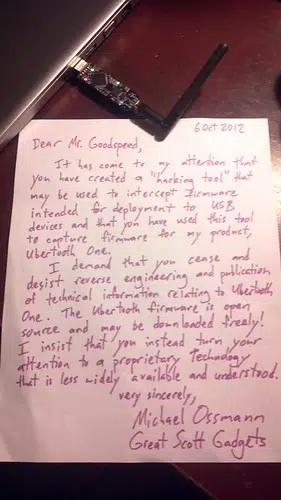 6 Oct 2012
Dear Mr. Goodspeed,
It has come to my attention that
you have created a "hacking tool" that
may be used to intercept firmware
intended for deployment to USB
devices and that you have used this tool
to capture firmware for my product,
Ubertooth One.
I demand that you cease and
desist reverse engineering and publication
of technical information relating to Ubertooth
One. The Ubertooth firmware is open
source and may be downloaded freely!
I insist that you instead turn your
attention to a proprietary technology
that is less widely available and understood.
very sincerely,
Michael Ossmann
Great Scott Gadgets